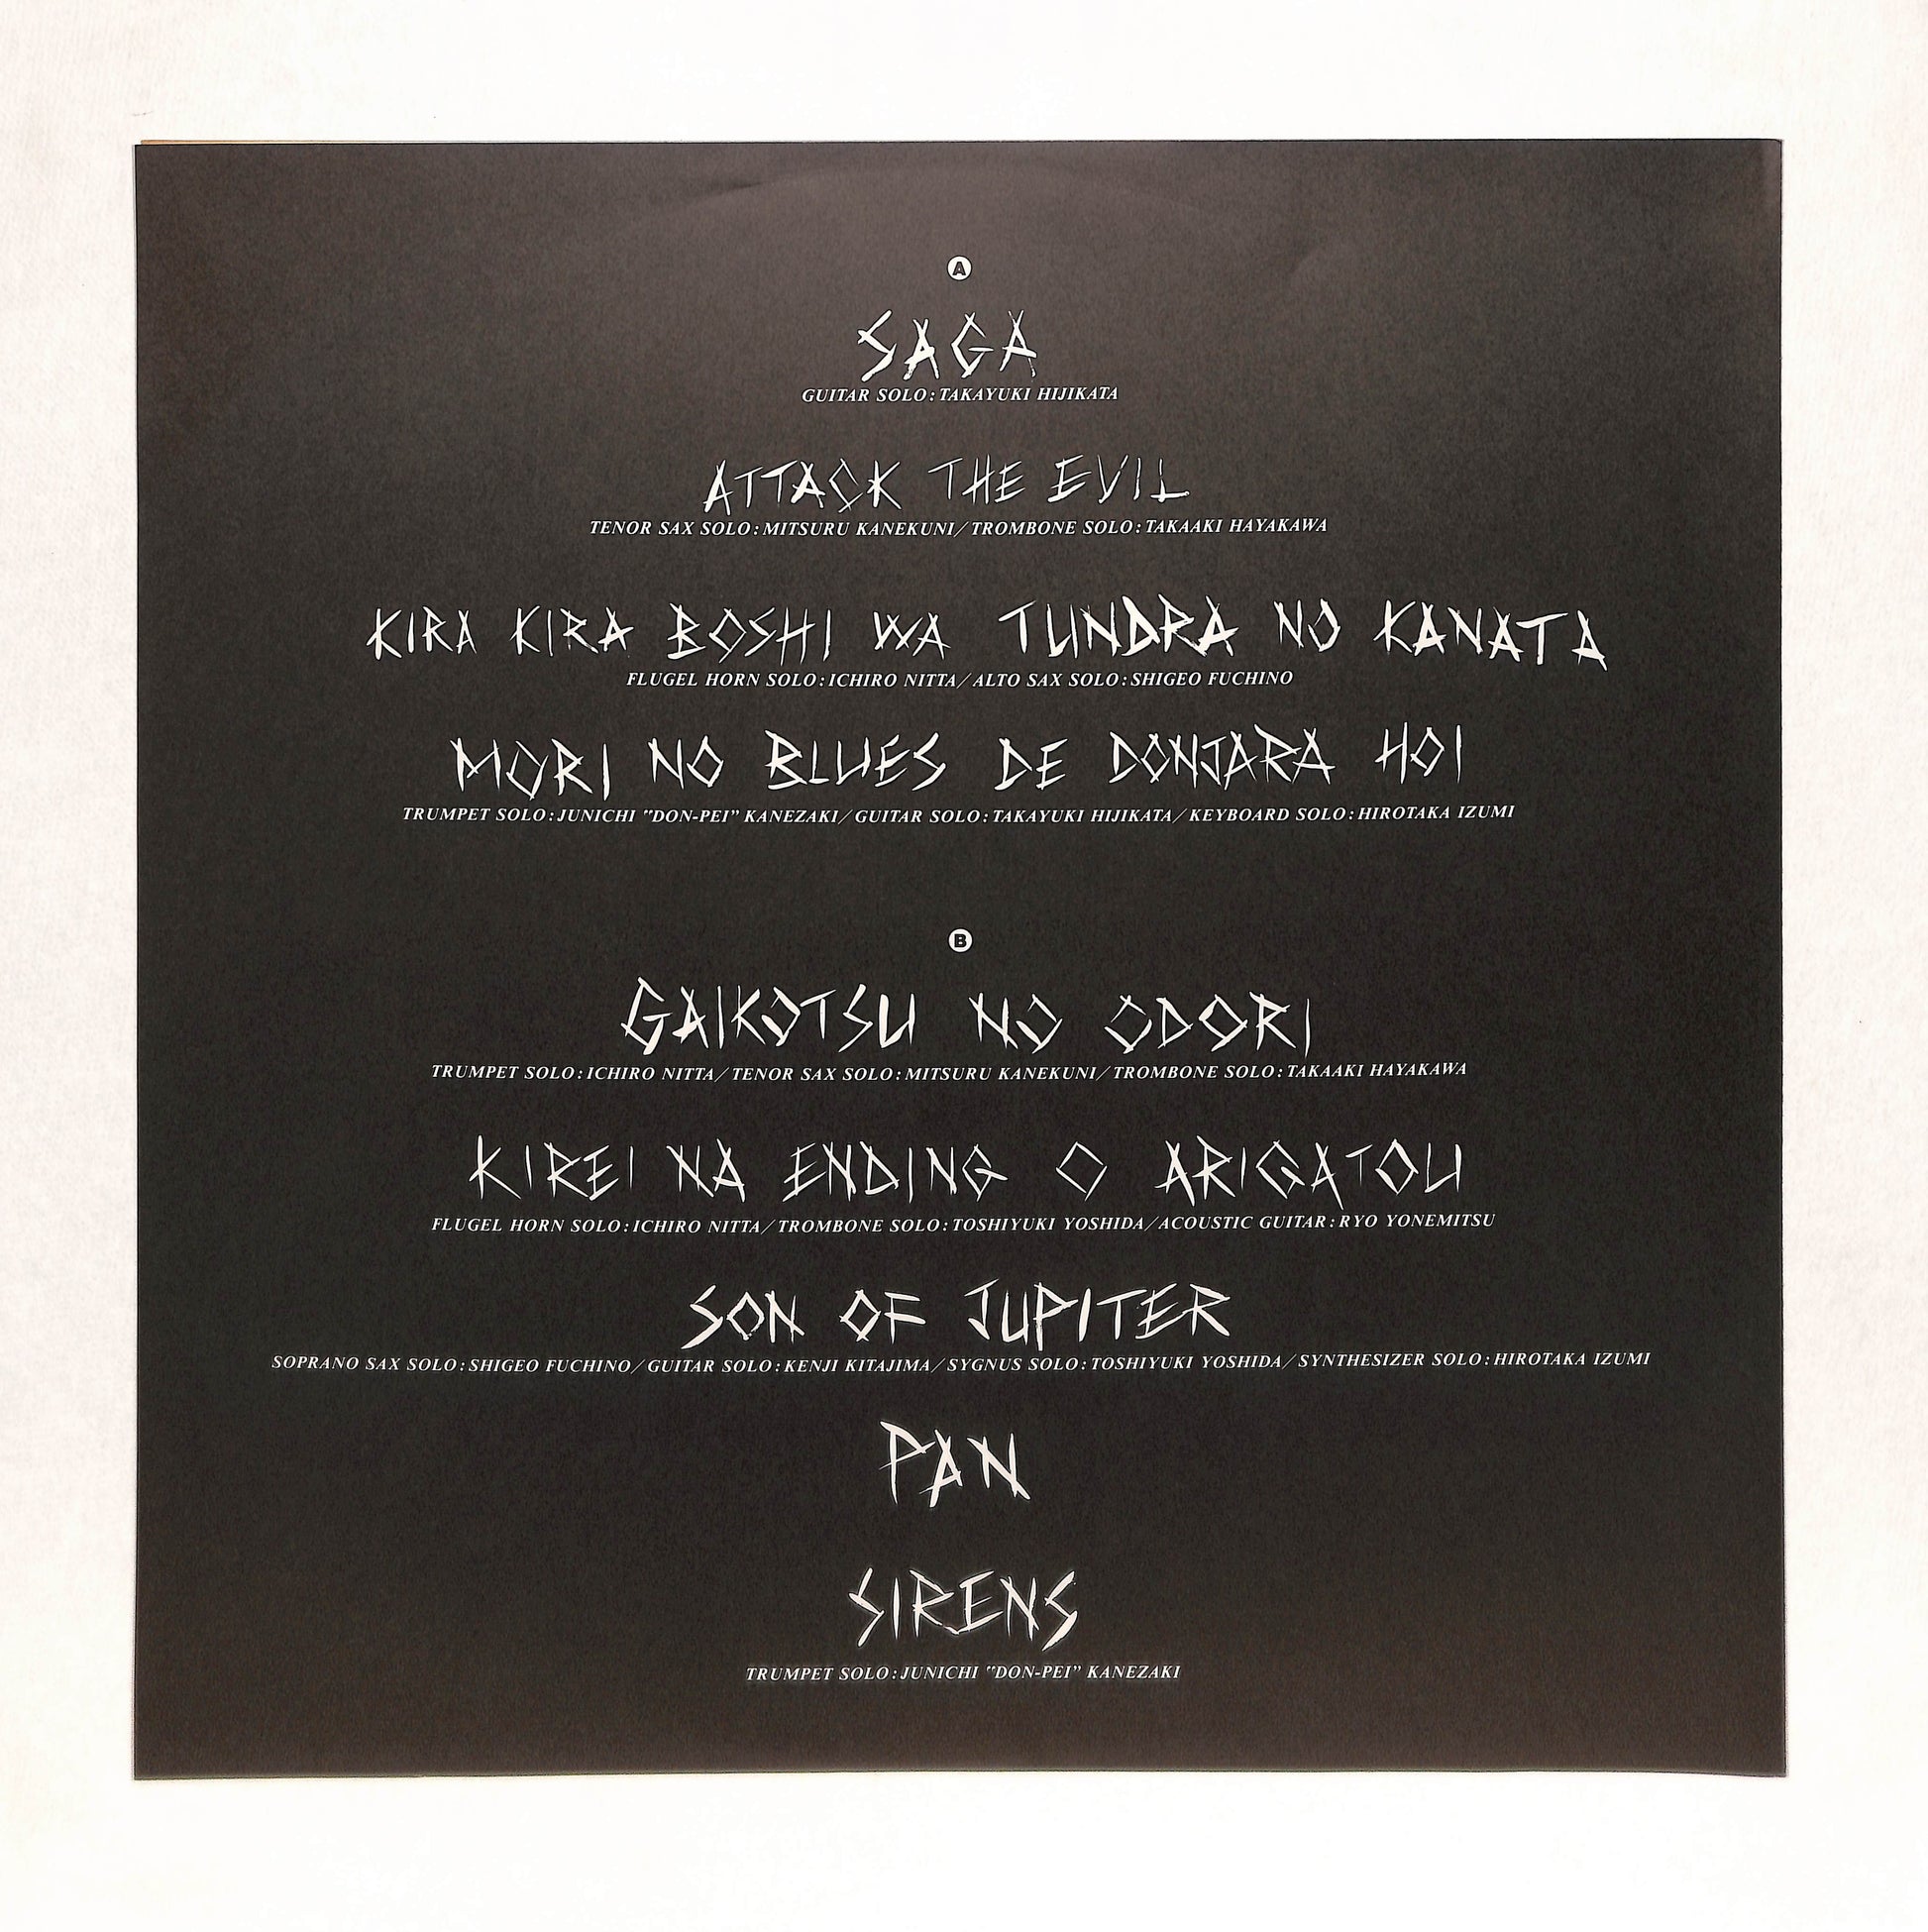 A
SAGA
GUITAR SOLO:TAKAYUKI HIJIKATA
ATTACK THE EVIL
TENOR SAX SOLO:MITSURU KANEKUNI/TROMBONE SOLO:TAKAAKI HAYAKAWA
KIRA KIRA BOSHI WA TUNDRA NO KANATA
FLUGEL HORN SOLO:ICHIRO NITTA/ALTO SAX SOLO:SHIGEO FUCHINO
MORI NO BLUES DE DONJARA HOI
TRUMPET SOLO:JUNICHI "DON-PEI" KANEZAKI/GUITAR SOLO:TAKAYUKI HIJIKATA/KEYBOARD SOLO:HIROTAKA IZUMI
B
GAIKOTSU NO ODORI
TRUMPET SOLO:ICHIRO NITTA/TENOR SAX SOLO:MITSURU KANEKUNI/TROMBONE SOLO:TAKAAKI HAYAKAWA
KIREI NA ENDING O ARIGATOU
FLUGEL HORN SOLO:ICHIRO NITTA/TROMBONE SOLO:TOSHIYUKI YOSHIDA/ACOUSTIC GUITAR:RYO YONEMITSU
SON OF JUPITER
SOPRANO SAX SOLO:SHIGEO FUCHINO/GUITAR SOLO:KENJI KITAJIMA/SYGNUS SOLO:TOSHIYUKI YOSHIDA/SYNTHESIZER SOLO:HIROTAKA IZUMI
PAN
SIRENS
TRUMPET SOLO:JUNICHI "DON-PEI" KANEZAKI